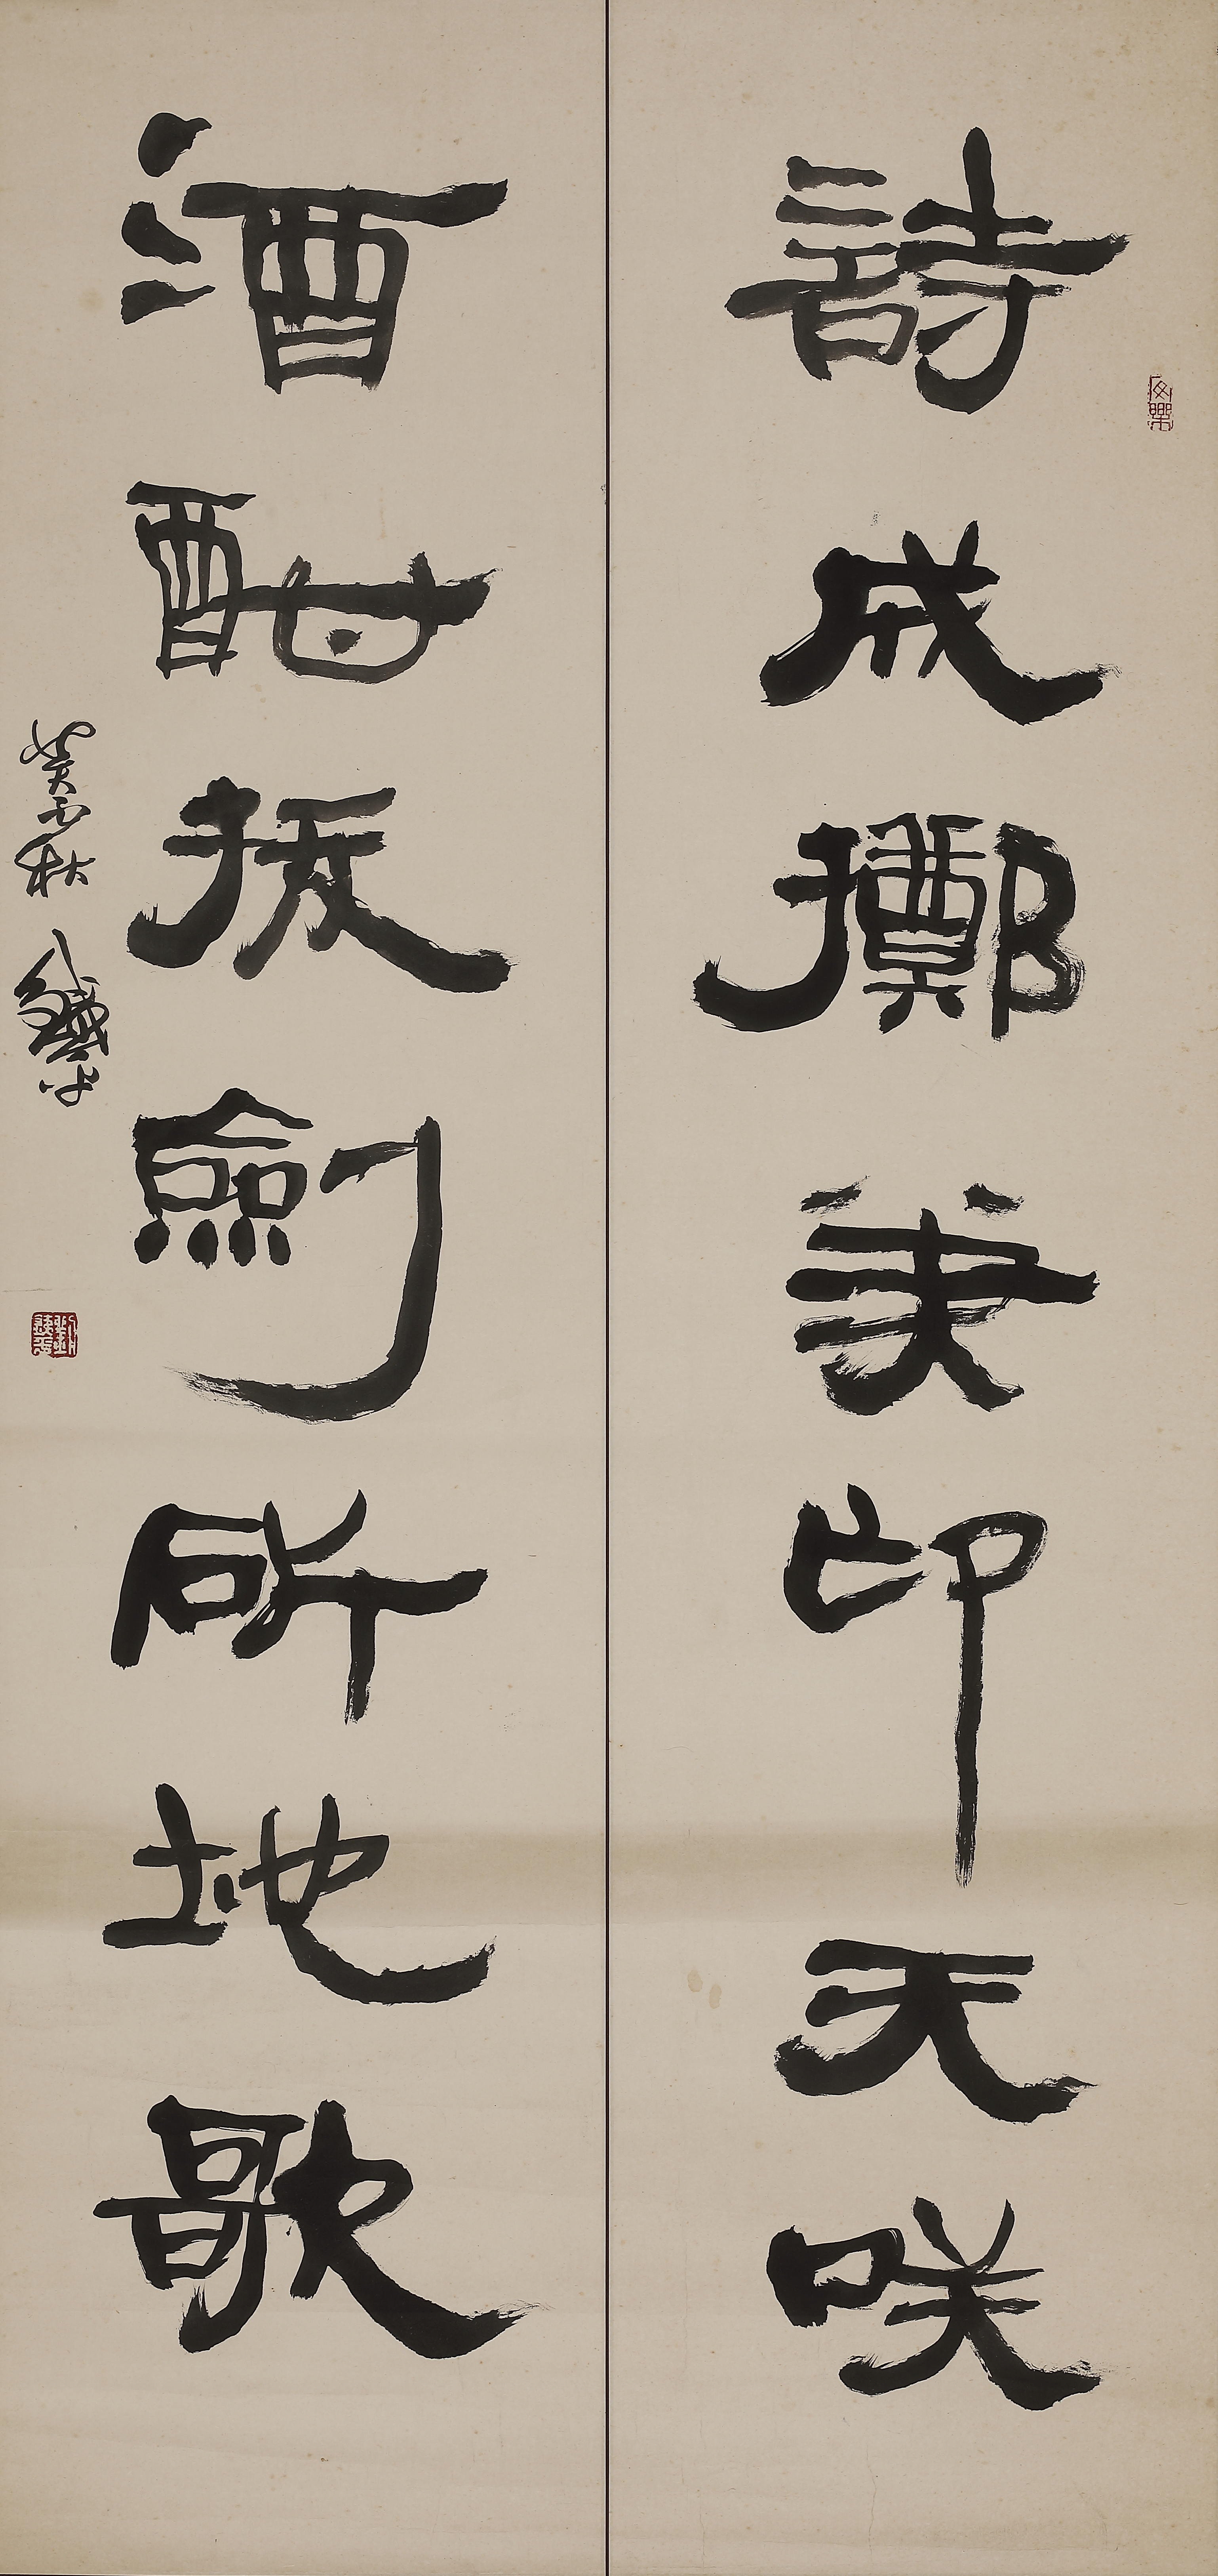 詩成擲筆仰天咲
酒酣拔劍斫地歌
癸丑秋